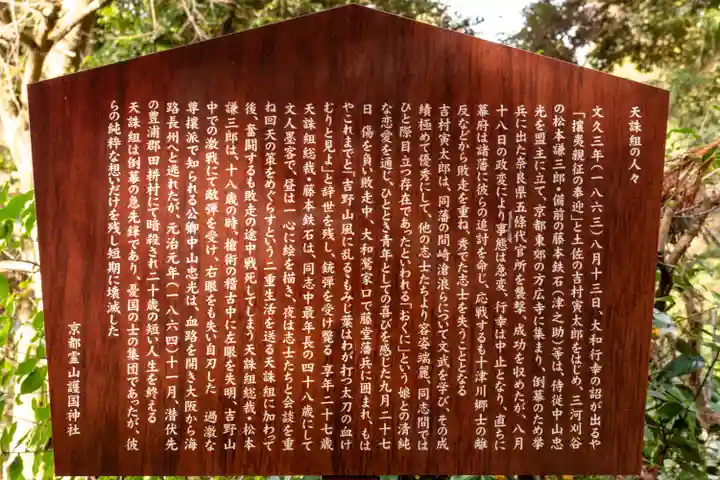 天誅組の人々
文久三年（一八六三）八月十三日、大和行幸の詔が出るや
「攘夷親征の奉迎」と土佐の吉村寅太郎をはじめ、三河刈谷
の松本謙三郎・備前の藤本鉄石（津之助）等は、侍従中山忠
光を盟主に立て、京都東郊の方広寺に集まり、倒幕のため挙
兵に出た奈良県五條代官所を襲撃、成功を収めたが、八月
十八日の政変により事態は急変、行幸は中止となり、直ちに
幕府は諸藩に彼らの追討を命じ、応戦するも十津川郷士の離
反などから敗走を重ね、秀でた志士を失うこととなる
吉村寅太郎は、同藩の間崎滄浪らについて文武を学び、その成
績極めて優秀にして、他の志士たちより容姿端麗、同志間では
ひと際目立つ存在であったといわれる「おくに」という娘との清純
な恋愛を通じ、ひととき青年としての喜びを感じた九月二十七
日、傷を負い敗走中、大和鷲家口で藤堂藩兵に囲まれ、もは
やこれまでと「吉野山風に乱るゝもみじ葉はわが打つ太刀の血け
むりと見よ」と辞世を残し、銃弾を受け斃る　享年二十七歳
天誅組総裁・藤本鉄石は、同志中最年長の四十八歳にして
文人墨客で、昼は一心に絵を描き、夜は志士たちと会談を重
ね回天の策をめぐらすという二重生活を送る天誅組に加わって
後、奮闘するも敗走の途中戦死してしまう天誅組総裁、松本
謙三郎は、十八歳の時、槍術の稽古中に左眼を失明、吉野山
中での激戦にて敵弾を受け、右眼をも失い自刃した　過激な
尊攘派で知られる公卿中山忠光は、血路を開き大阪から海
路長州へと逃れたが、元治元年（一八六四）十一月、潜伏先
の豊浦郡田耕村にて暗殺され二十歳の短い人生を終える
天誅組は倒幕の急先鋒であり、憂国の士の集団であったが、彼
らの純粋な想いだけを残し短期に壊滅した
京都霊山護国神社